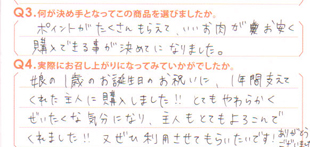 Q3.何が決め手となってこの商品を選びましたか。
ポイントがたくさんもらえて、いいお肉がお安く
購入できる事が決めてになりました。
Q4.実際にお召し上がりになってみていかがでしたか。
娘の1歳のお誕生日のお祝いに、1年間支えて
くれた主人に購入しました!!とてもやわらかく
ぜいたくな気分になり、主人もとてもよろこんで
くれました!!又ぜひ利用させてもらいたいです!
ありがとう
ございました